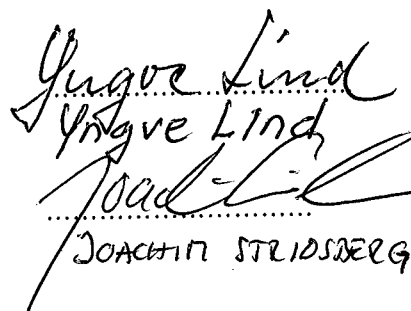 Yngve Lind
Yngve Lind
JOACHIM STRIDSBERG